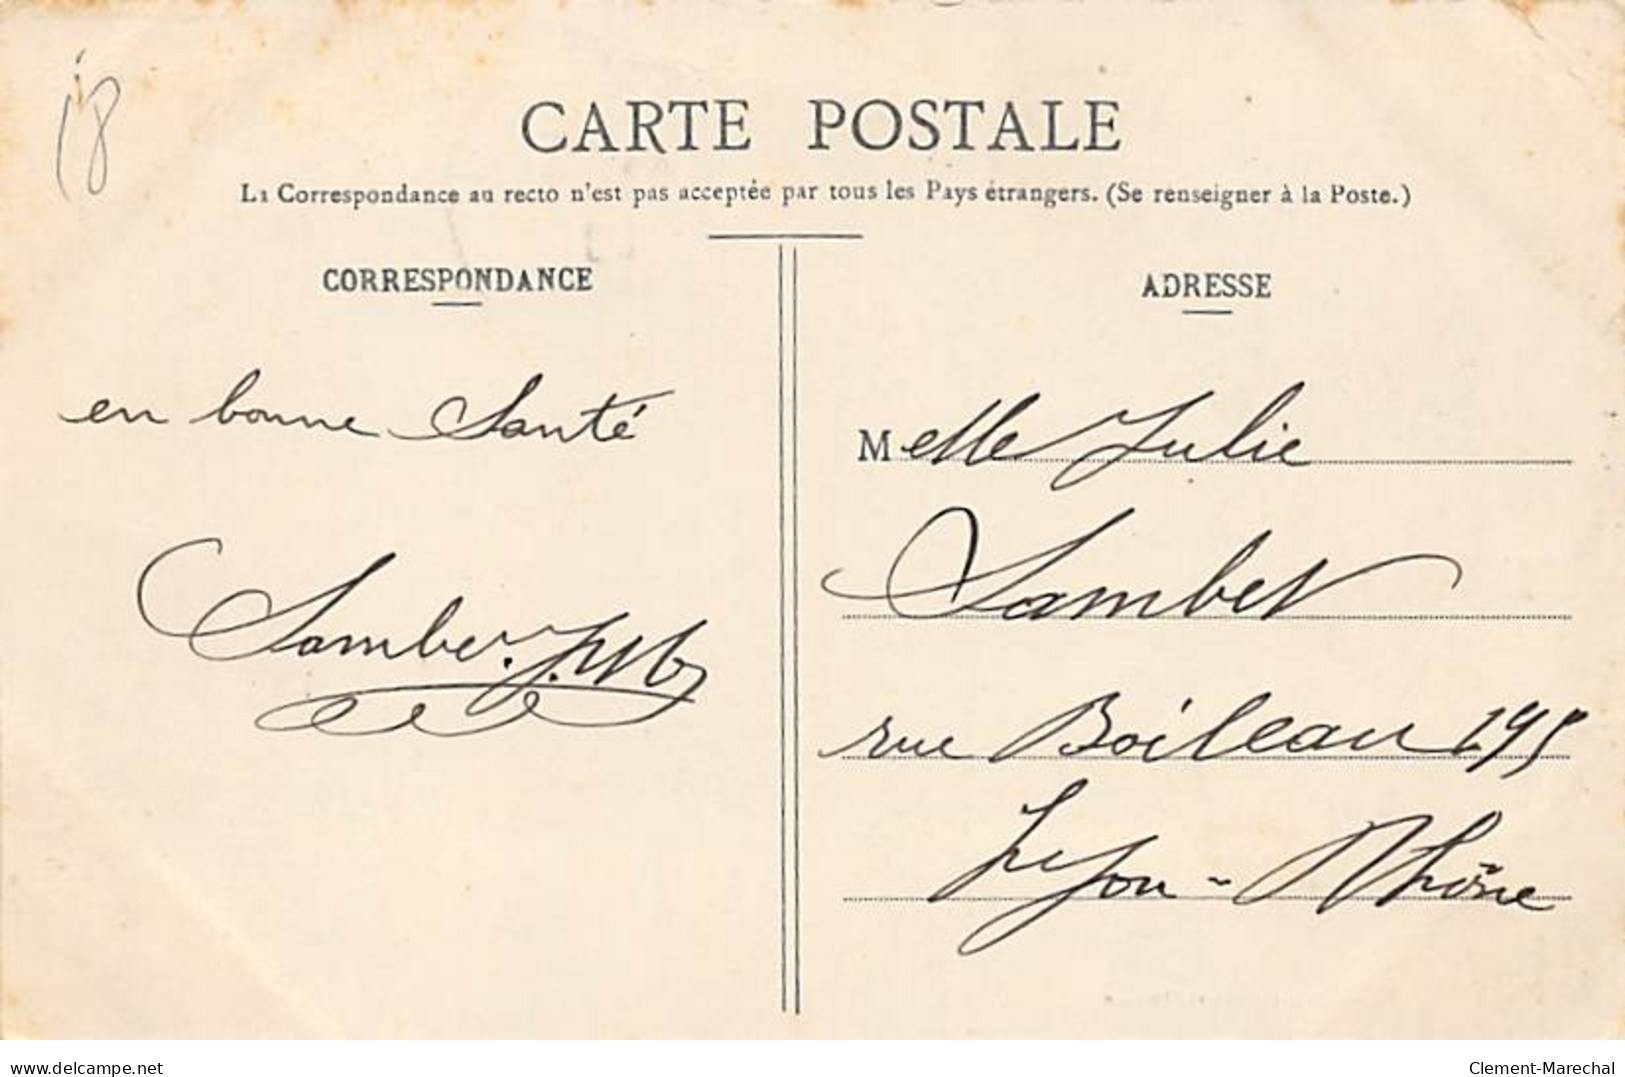 18
CARTE POSTALE
La Correspondance au recto n'est pas acceptée par tous les Pays étrangers. (Se renseigner à la Poste.)
CORRESPONDANCE
en bonne Santé
ADRESSE
Melle Julie
Sambet
rue Boileau 195
Lyon - Rhône
www.delcampe.net
Clement-Marechal